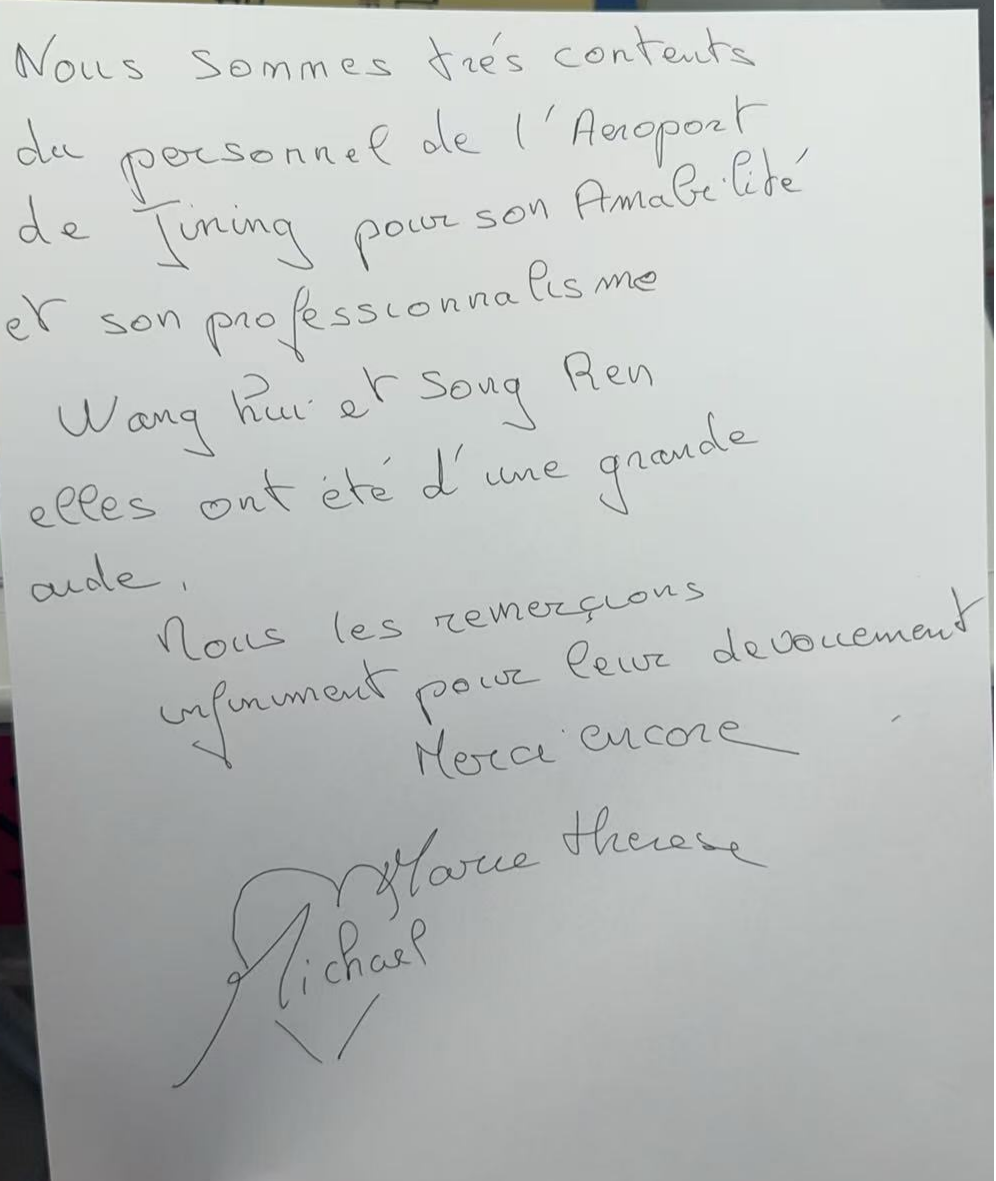 Nous sommes trés contents
du personnel de l'Aeroport
de Jining pour son Amabilité
et son professionnalisme
Wang hui et Song Ren
elles ont été d'une grande
aide.
Nous les remerçions
infiniment pour leur devouement
Merci encore
Marie therese
Michael